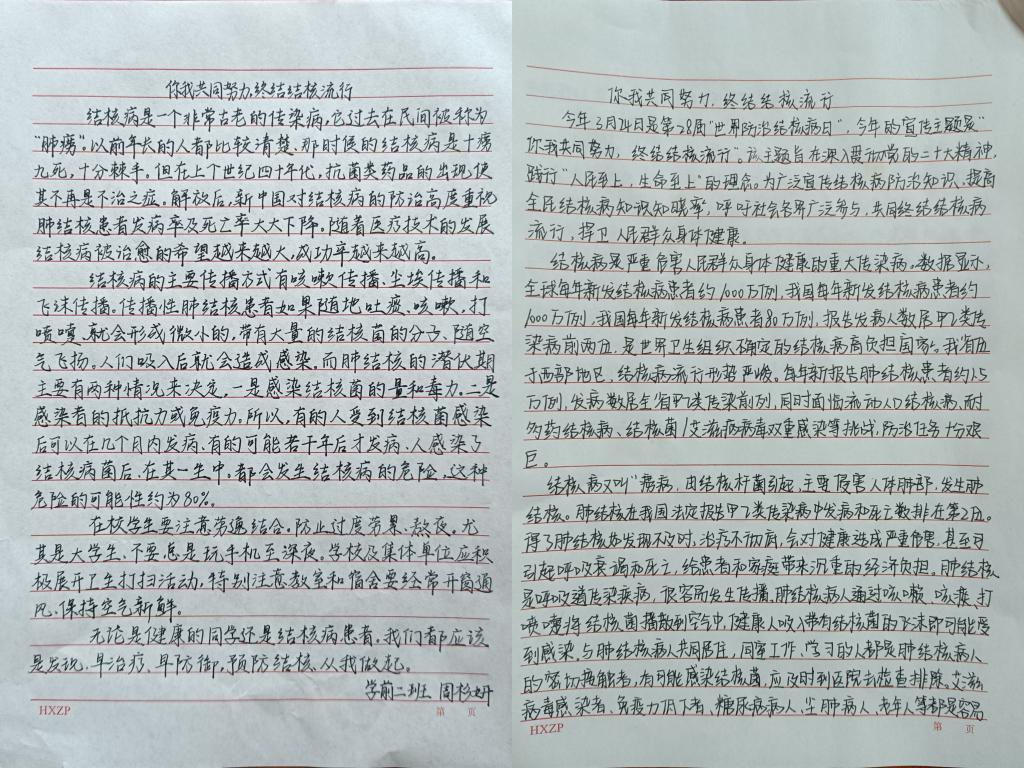 你我共同努力,终结结核流行
结核病是一个非常古老的传染病,它过去在民间被称为
“肺痨”。以前年长的人都比较清楚,那时候的结核病是十痨
九死,十分棘手。但在上个世纪四十年代,抗菌类药品的出现,使
其不再是不治之症。解放后,新中国对结核病的防治高度重视
肺结核患者发病率及死亡率大大下降。随着医疗技术的发展
结核病被治愈的希望越来越大,成功率越来越高。
结核病的主要传播方式有咳嗽传播、尘埃传播和
飞沫传播。传播性肺结核患者如果随地吐痰、咳嗽、打
喷嚏,就会形成微小的,带有大量的结核菌的分子、随空
气飞扬。人们吸入后就会造成感染。而肺结核的潜伏期
主要有两种情况来决定,一是感染结核菌的量和毒力。二是
感染者的抵抗力或免疫力。所以,有的人受到结核菌感染
后可以在几个月内发病、有的可能若干年后才发病、人感染了
结核病菌后、在其一生中,都会发生结核病的危险,这种
危险的可能性约为80%。
在校学生要注意劳逸结合。防止过度劳累、熬夜。尤
其是大学生、不要总是玩手机至深夜。学校及集体单位应积
极展开卫生打扫活动,特别注意教室和宿舍要经常开窗通
风、保持空气新鲜。
无论是健康的同学还是结核病患者。我们都应该
早发现、早治疗、早防御,预防结核、从我做起。
学前二班 周杉妍
HXZP 第 页
你我共同努力,终结结核流行
今年3月24日是第28届“世界防治结核病日”,今年的宣传主题是“
你我共同努力,终结结核流行”。该主题旨在深入贯彻党的二十大精神,
践行“人民至上,生命至上”的理念。为广泛宣传结核病防治知识、提高
全民结核病知识知晓率,呼吁社会各界广泛参与,共同终结结核病
流行,捍卫人民群众身体健康。
结核病是严重危害人民群众身体健康的重大传染病。数据显示,
全球每年新发结核病患者约1000万例,我国每年新发结核病患者约
1000万例,我国每年新发结核病患者80万例,报告发病人数居甲乙类传
染病前两位,是世界卫生组织确定的结核病高负担国家。我省位
于西部地区,结核病流行形势严峻。每年新报告肺结核患者约1.5
万例,发病数居全省甲乙类传染前列,同时面临流动人口结核病、耐
多药结核病、结核菌/艾滋病病毒双重感染等挑战,防治任务十分艰
巨。
结核病又叫“痨病,由结核杆菌引起,主要侵害人体肺部,发生肺
结核。肺结核在我国法定报告甲乙类传染病中发病和死亡数排在第2位。
得了肺结核如发现不及时,治疗不彻底,会对健康造成严重危害,甚至可
引起呼吸衰竭和死亡,给患者和家庭带来沉重的经济负担。肺结核
是呼吸道传染疾病,很容易发生传播。肺结核病人通过咳嗽、咳痰、打
喷嚏将结核菌播散到空气中,健康人吸入带有结核菌的飞沫即可能受
到感染。与肺结核病人共同居住,同室工作、学习的人都是肺结核病人
的密切接触者,有可能感染结核菌,应及时到医院去检查排除。艾滋
病毒感染者、免疫力低下者、糖尿病病人、尘肺病人、老年人等都是容易
HXZP 第 页